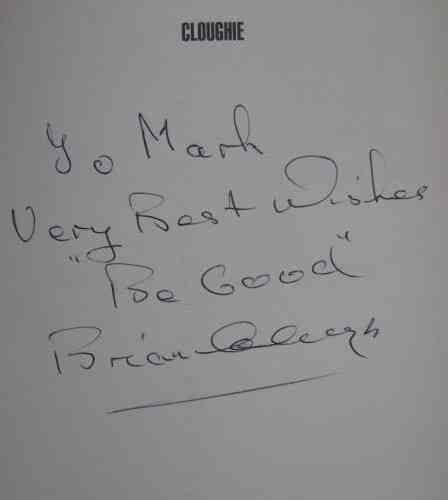 CLOUGHIE
To Mark
Very Best Wishes
"Be Good"
Brian Clough